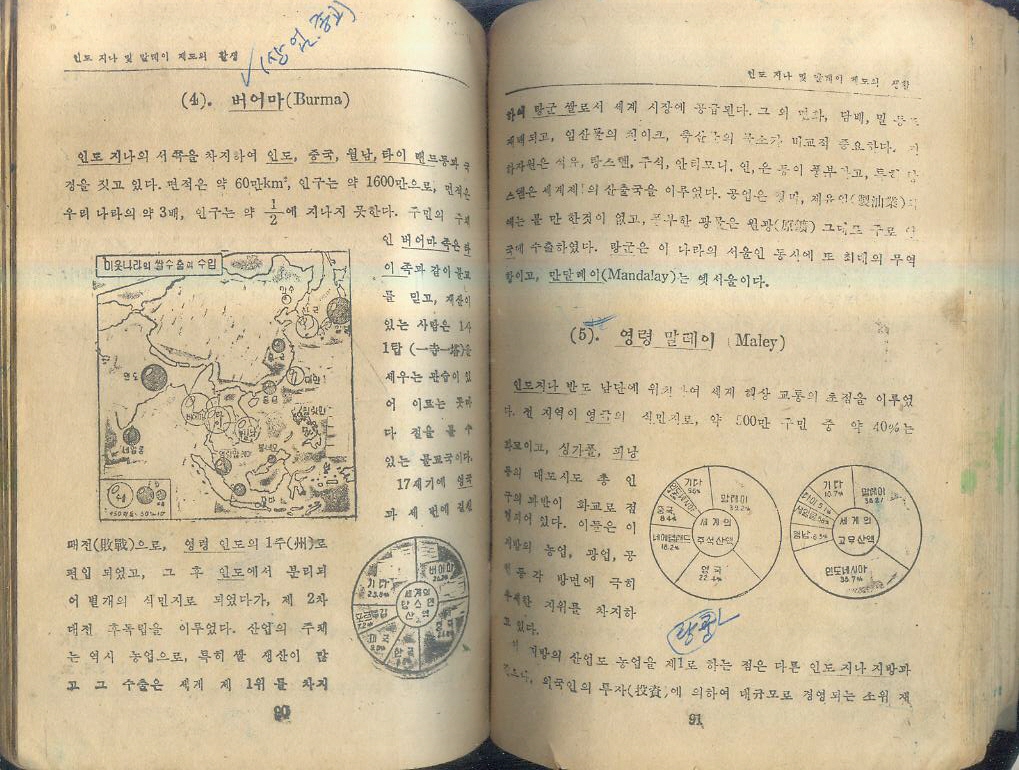 인도 지나 및 말레이 제도의 활생
(상업.중고)
(4). 버어마(Burma)
인도 지나의 서쪽을 차지하여 인도, 중국, 월남, 타이 랜드등과 국
경을 짓고 있다. 면적은 약 60만km², 인구는 약 1600만으로, 면적은
우리 나라의 약 3배, 인구는 약 1/2에 지나지 못한다. 주민의 주체
인 버어마 족은 타
이 족과 같이 불교
를 믿고, 재산이
있는 사람은 1사
1탑 (一寺一塔)을
세우는 관습이 있
어 이르는 곳마
다 절을 볼 수
있는 불교국이다.
17세기에 영국
과 세 번에 걸친
이웃나라의 쌀수출과 수입
인도
한국
일본
대만
홍콩
세일론
패전(敗戰)으로, 영령 인도의 1주(州)로
편입 되었고, 그 후 인도에서 분리되
어 별개의 식민지로 되었다가, 제 2차
대전 후독립을 이루었다. 산업의 주체
는 역시 농업으로, 특히 쌀 생산이 많
고 그 수출은 세계 제 1위를 차지
세계의
탕스텐
산액
버어마
기타
미국
한국
90
인도 지나 및 말레이 제도의 생활
하여 랑군 쌀로서 세계 시장에 공급된다. 그 외 면화, 담배, 밀 등도
재배되고, 임산물의 티이크, 축산물의 물소가 비교적 중요하다. 지
하자원은 석유, 탕스텐, 주석, 안티모니, 연, 은 등이 풍부하고, 특히 탕
스텐은 세계제1의 산출국을 이루었다. 공업은 정미, 제유업(製油業)외
에는 볼 만 한것이 없고, 풍부한 광물은 원광(原鑛) 그대로 주로 영
국에 수출하였다. 랑군은 이 나라의 서울인 동시에 또 최대의 무역
항이고, 만달레이(Mandalay)는 옛 서울이다.
(5). 영령 말레이 (Maley)
인도지나 반도 남단에 위치하여 세계 해상 교통의 초점을 이루었
다. 전 지역이 영국의 식민지로, 약 500만 주민 중 약 40%는
화교이고, 싱가폴, 피낭
등의 대도시도 총 인
구의 과반이 화교로 점
령되어 있다. 이들은 이
지방의 농업, 광업, 공
업 등 각 방면에 극히
우세한 지위를 차지하
고 있다.
세계의
주석산액
기타
말레이
39.2%
영국
22.4%
네에델란드
18.2%
중국
8.4%
세계의
고무산액
기타
10.7%
말레이
인도네시아
38.7%
월남
이 지방의 산업도 농업을 제1로 하는 점은 다른 인도 지나 지방과
같으나, 외국인의 투자(投資)에 의하여 대규모로 경영되는 소위 재
91